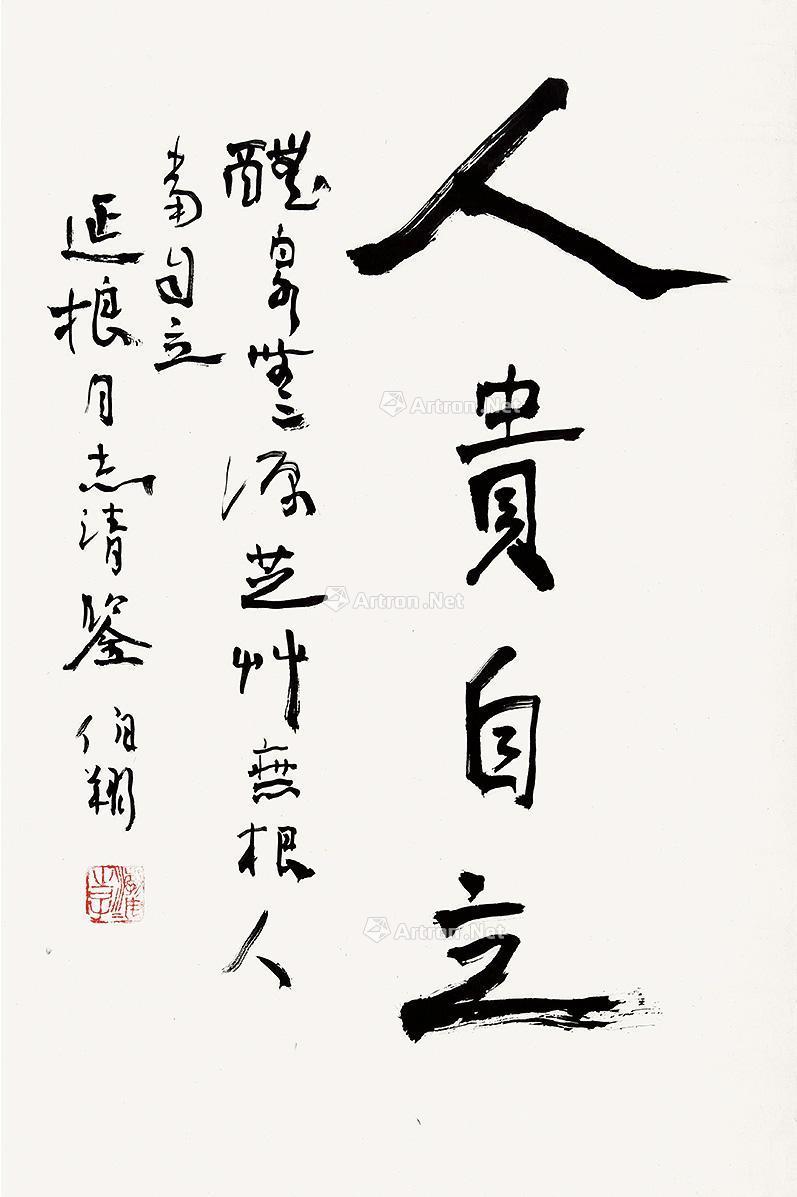 人貴自立
醴泉無源芝艸無根人
當自立
延根同志清鑒 伯翔
Artron.Net
Artron.Net
Artron.Net